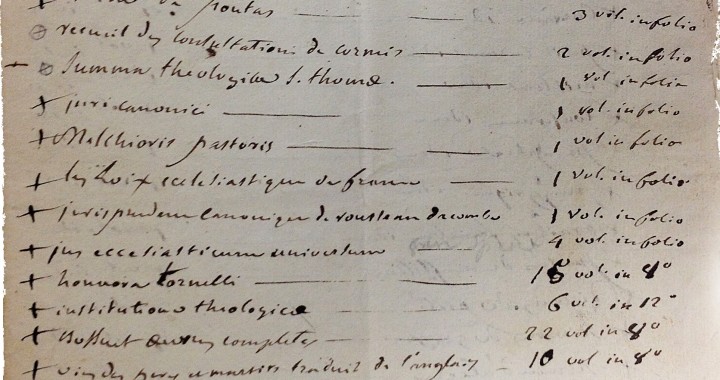 de pontas 3 vol. in folio
recueil des consultations de cormis 2 vol in folio
Summa theologicæ S. thomæ. 1 vol in folio
juris canonici 1 vol in folio
Melchioris pastoris 1 vol in folio
les Loix ecclesiastique de france 1 vol in folio
jurisprudence Canonique de rousseau dacombe 1 vol. in folio
jus ecclesiasticum universum 4 vol. in folio
honnora tornelli vol. in 8°
institutiones theologicæ 6 vol. in 12°
Bossuet œuvres completes 22 vol in 8°
vies des peres et martirs traduit de l'anglais 10 vol in 8°